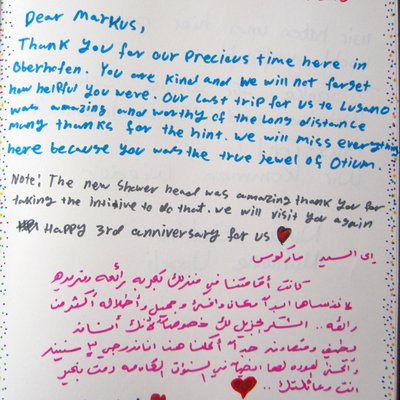 Dear Markus,
Thank you for our precious time here in
Oberhofen. You are kind and we will not forget
how helpful you were. Our last trip for us to Lugano
was amazing and worthy of the long distance
many thanks for the hint. we will miss everything
here because you was the true jewel of Otium.
Note: The new shower head was amazing thank you for
taking the initive to do that. we will visit you again
Happy 3rd anniversary for us
الى السيد ماركوس
كانت أقامتنا في منزلك تجربه رائعه وفريده
لا ننساها ابداً مكان دافئ وجميل وأطلاله أكثر من
رائعه .. الشكر جزيل لك خصوصاً لأنك أنسان
لطيف ومتعاون
انت وعائلتك